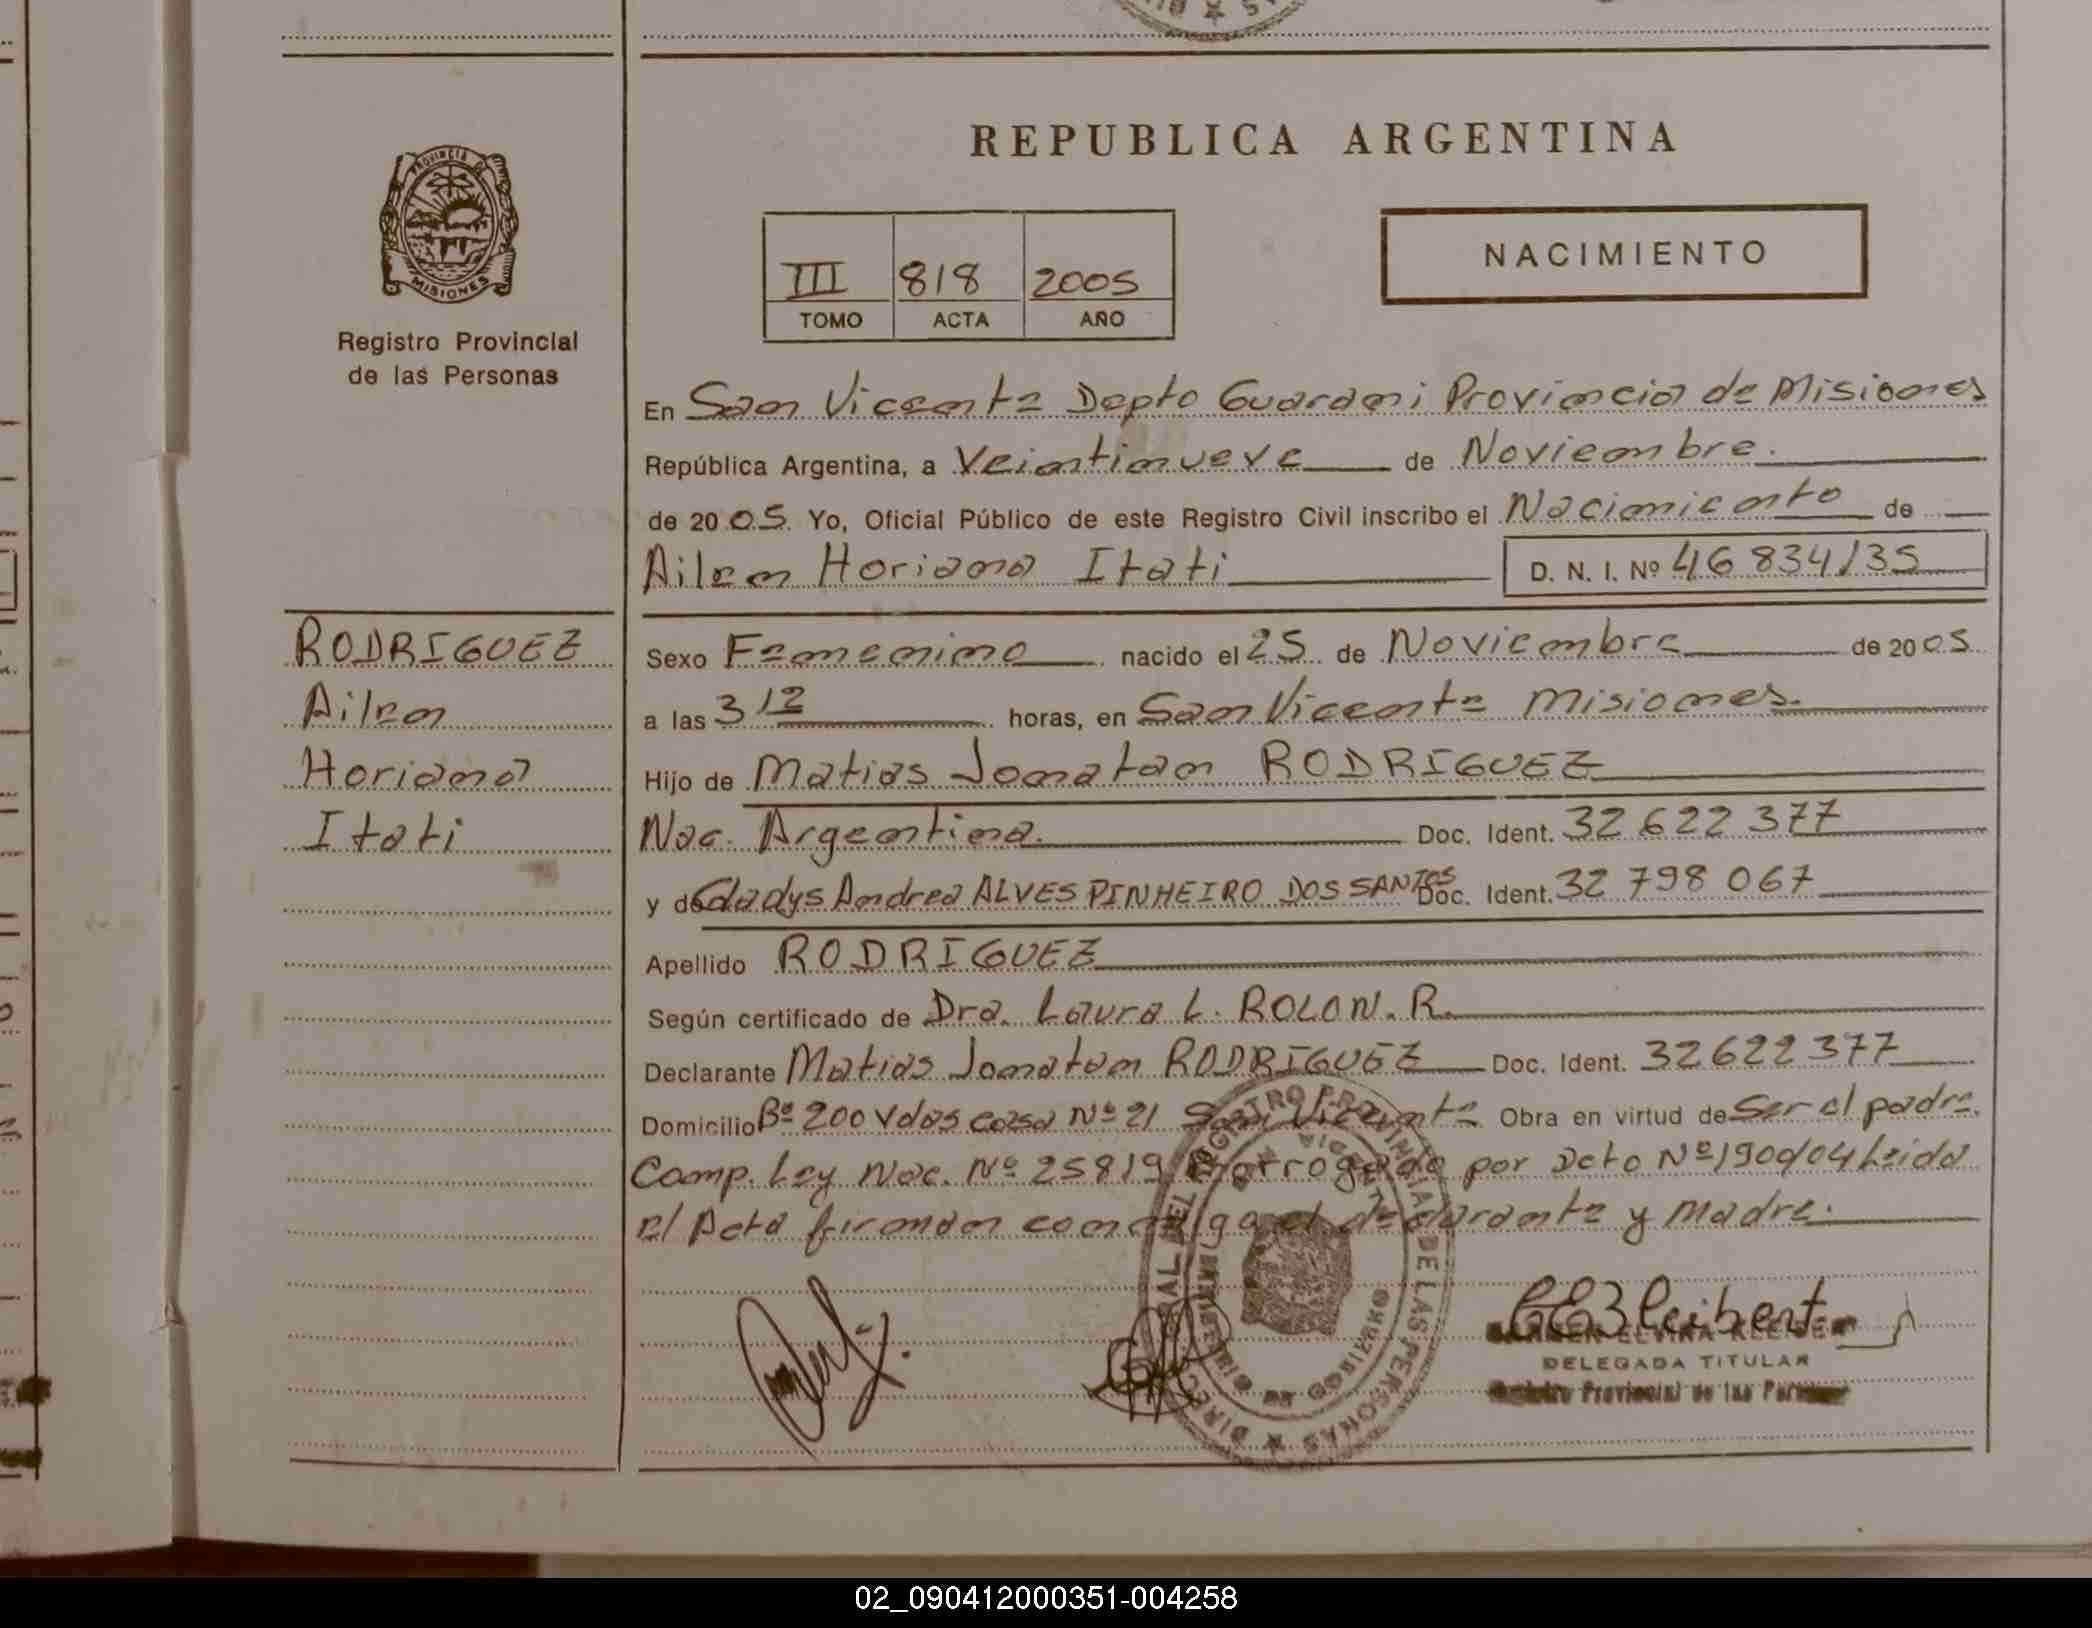 REPUBLICA ARGENTINA
PROVINCIA DE
MISIONES
Registro Provincial
de las Personas
III 818 2005
TOMO ACTA AÑO
NACIMIENTO
En San Vicente Depto Guarani Provincia de Misiones
República Argentina, a Veintinueve de Noviembre.
de 2005. Yo, Oficial Público de este Registro Civil inscribo el Nacimiento de
Ailen Horiana Itati D. N. I. Nº 46 834135
RODRIGUEZ
Ailen
Horiana
Itati
Sexo Femenino nacido el 25 de Noviembre de 2005
a las 3 12 horas, en San Vicente Misiones.
Hijo de Matias Jonatan RODRIGUEZ
Nac. Argentina. Doc. Ident. 32 622 377
y de Gladys Andrea ALVES PINHEIRO DOS SANTOS Doc. Ident. 32 798 067
Apellido RODRIGUEZ
Según certificado de Dra. Laura L. ROLON. R.
Declarante Matias Jonatan RODRIGUEZ Doc. Ident. 32622377
Domicilio Bº 200 Vdas casa Nº 21 San Vicente Obra en virtud de Ser el padre.
Comp. Ley Nac. Nº 25819 Prorrogado por Dcto Nº 1900/04 Leida
el Acta firman conmigo el declarante y Madre.
DIRECCION GENERAL DEL REGISTRO PROVINCIAL DE LAS PERSONAS
MINISTERIO DE GOBIERNO
DELEGADA TITULAR
Registro Provincial de las Personas
02_090412000351-004258